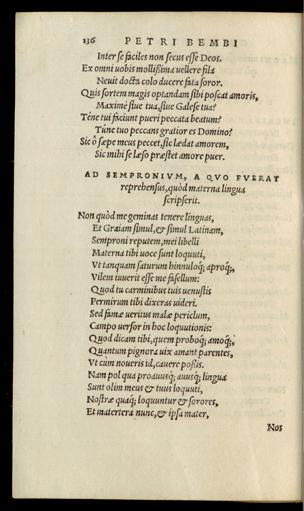 136 PETRI BEMBI
Inter se faciles non secus esse Deos.
Ex omni uobis mollissima uellere fila
Neuit docta colo ducere fata soror.
Quis sortem magis optandam sibi poscat amoris,
Maxime siue tua, siue Galese tua?
Téne tui faciunt pueri peccata beatum?
Túne tuo peccans gratior es Domino?
Sic ô sæpe meus peccet, sic lædat amorem,
Sic mihi se læso præstet amore puer.
AD SEMPRONIVM, A QVO FVERAT
reprehensus, quòd materna lingua
scripserit.
Non quòd me geminas tenere linguas,
Et Graiam simul, & simul Latinam,
Semproni reputem, mei libelli
Materna tibi uoce sunt loquuti,
Vt tanquam saturum hinnuloq; aproq;,
Vilem iuuerit esse me fasellum:
Quod tu carminibus tuis uenustis
Permirum tibi dixeras uideri.
Sed famæ ueritus malæ periclum,
Campo uersor in hoc loquutionis:
Quod dicam tibi, quem proboq; amoq;,
Quantum pignora uix amant parentes,
Vt cum noueris id, cauere possis.
Nam pol qua proauusq; auusq; lingua
Sunt olim meus & tuus loquuti,
Nostræ quaq; loquuntur & sorores,
Et matertera nunc, & ipsa mater,
Nos